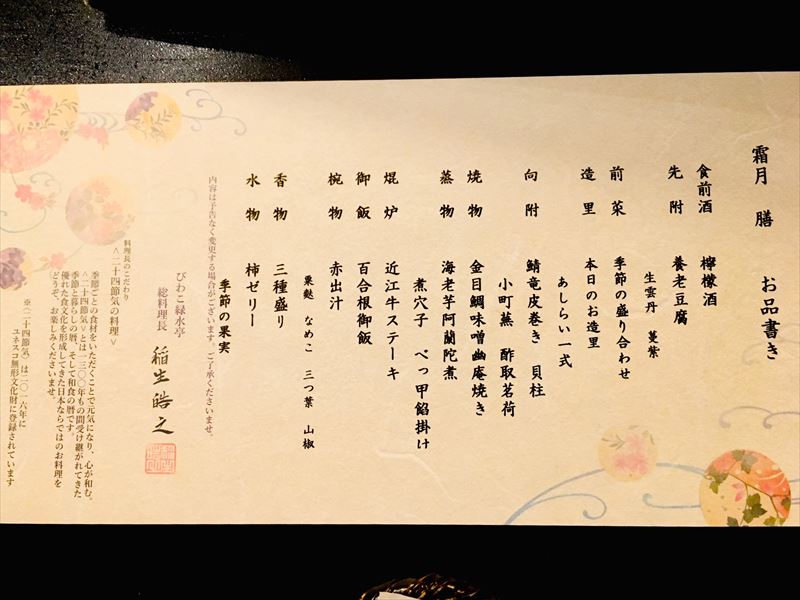 霜月 膳 お品書き
食前酒 檸檬酒
先附 養老豆腐
生雲丹 蔓紫
前菜 季節の盛り合わせ
造里 本日のお造里
あしらい一式
向附 鯖竜皮巻き 貝柱
小町蒸 酢取茗荷
焼物 金目鯛味噌幽庵焼き
蒸物 海老芋阿蘭陀煮
煮穴子 べっ甲餡掛け
焜炉 近江牛ステーキ
御飯 百合根御飯
椀物 赤出汁
粟麩 なめこ 三つ葉 山椒
香物 三種盛り
水物 柿ゼリー
季節の果実
内容は予告なく変更する場合がございます。ご了承くださいませ。
びわこ緑水亭
総料理長 稲生皓之
料理長のこだわり
＜二十四節気の料理＞
季節ごとの食材をいただくことで元気になり、心が和む。
＜二十四節気＞とは一三〇〇年もの間受け継がれてきた
季節と暮らしの暦、そして和食の暦です。
優れた食文化を形成してきた日本ならではのお料理を
どうぞ、お楽しみくださいませ。
※〈二十四節気〉は二〇一六年に
ユネスコ無形文化財に登録されています